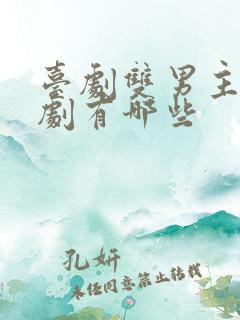 臺劇雙男主
劇有哪些
孔妍
未经同意禁止转载